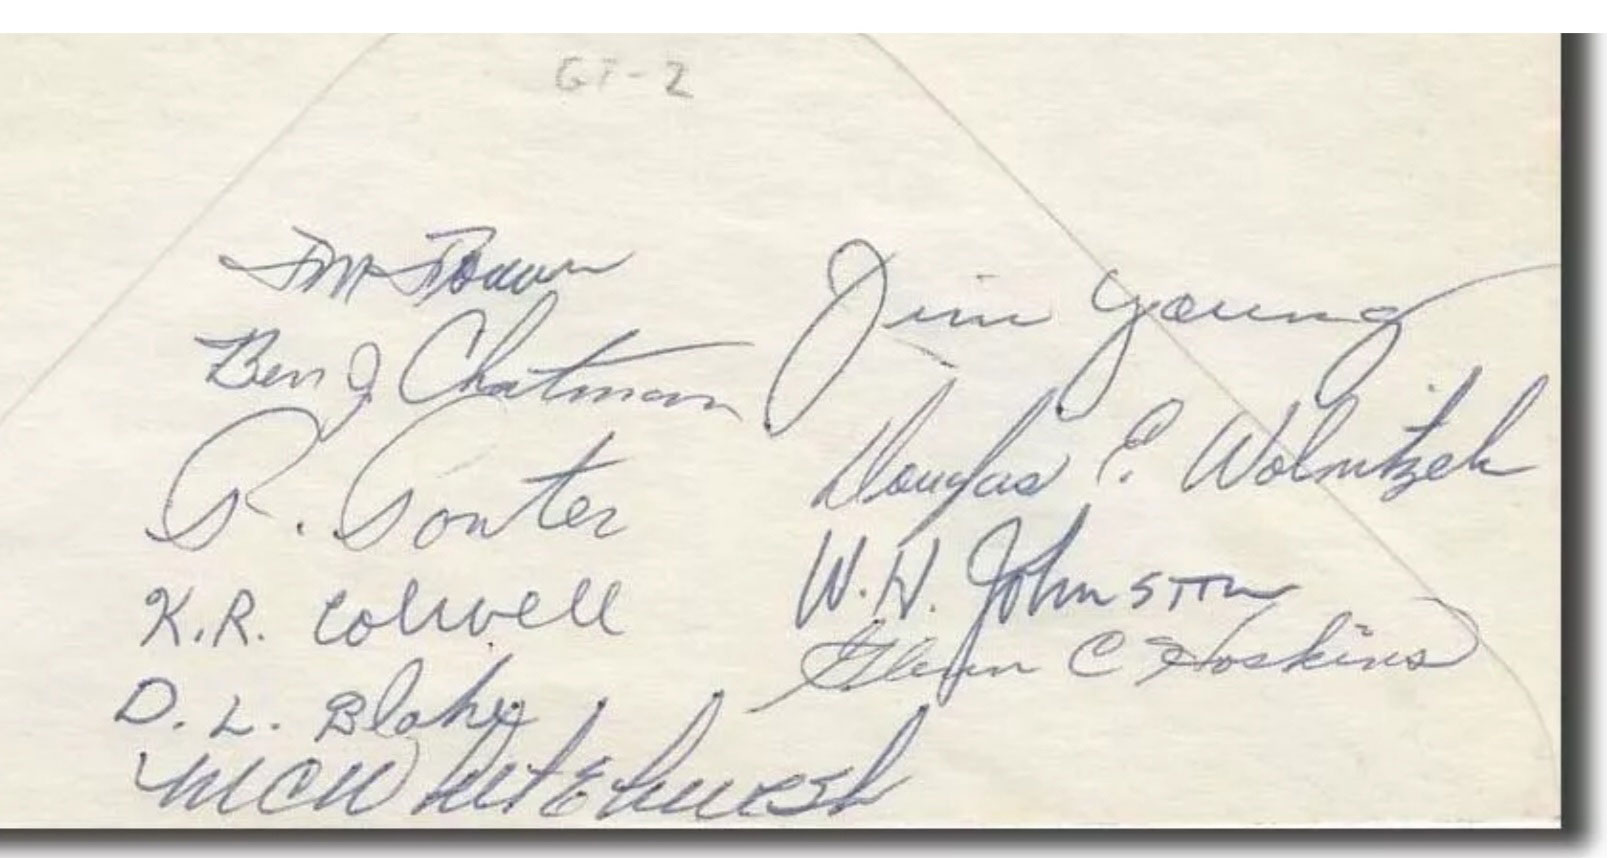 GT-2
Ben J Chatman
R. Souter
K.R. Colwell
D. L. Blake
Jim Young
Douglas E. Wolnitzek
W. H. Johnston
Glenn C Hoskins